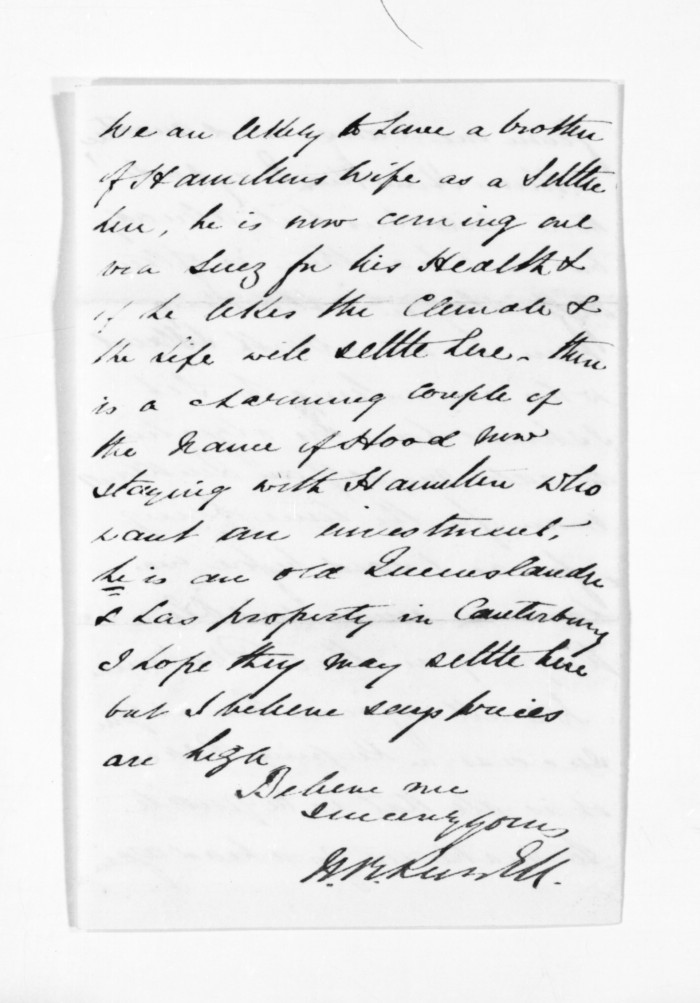 We are likely to have a brother
of Hamiltons wife as a Settler
here, he is now coming out
via Suez for his Health &
if he likes the Climate &
the life will settle here. There
is a charming couple of
the name of Hood now
staying with Hamilton who
want an investment,
he is an old Queenslander
& has property in Canterbury
I hope they may settle here
but I believe says prices
are high
Believe me
sincerely yours
H.R. Russell.